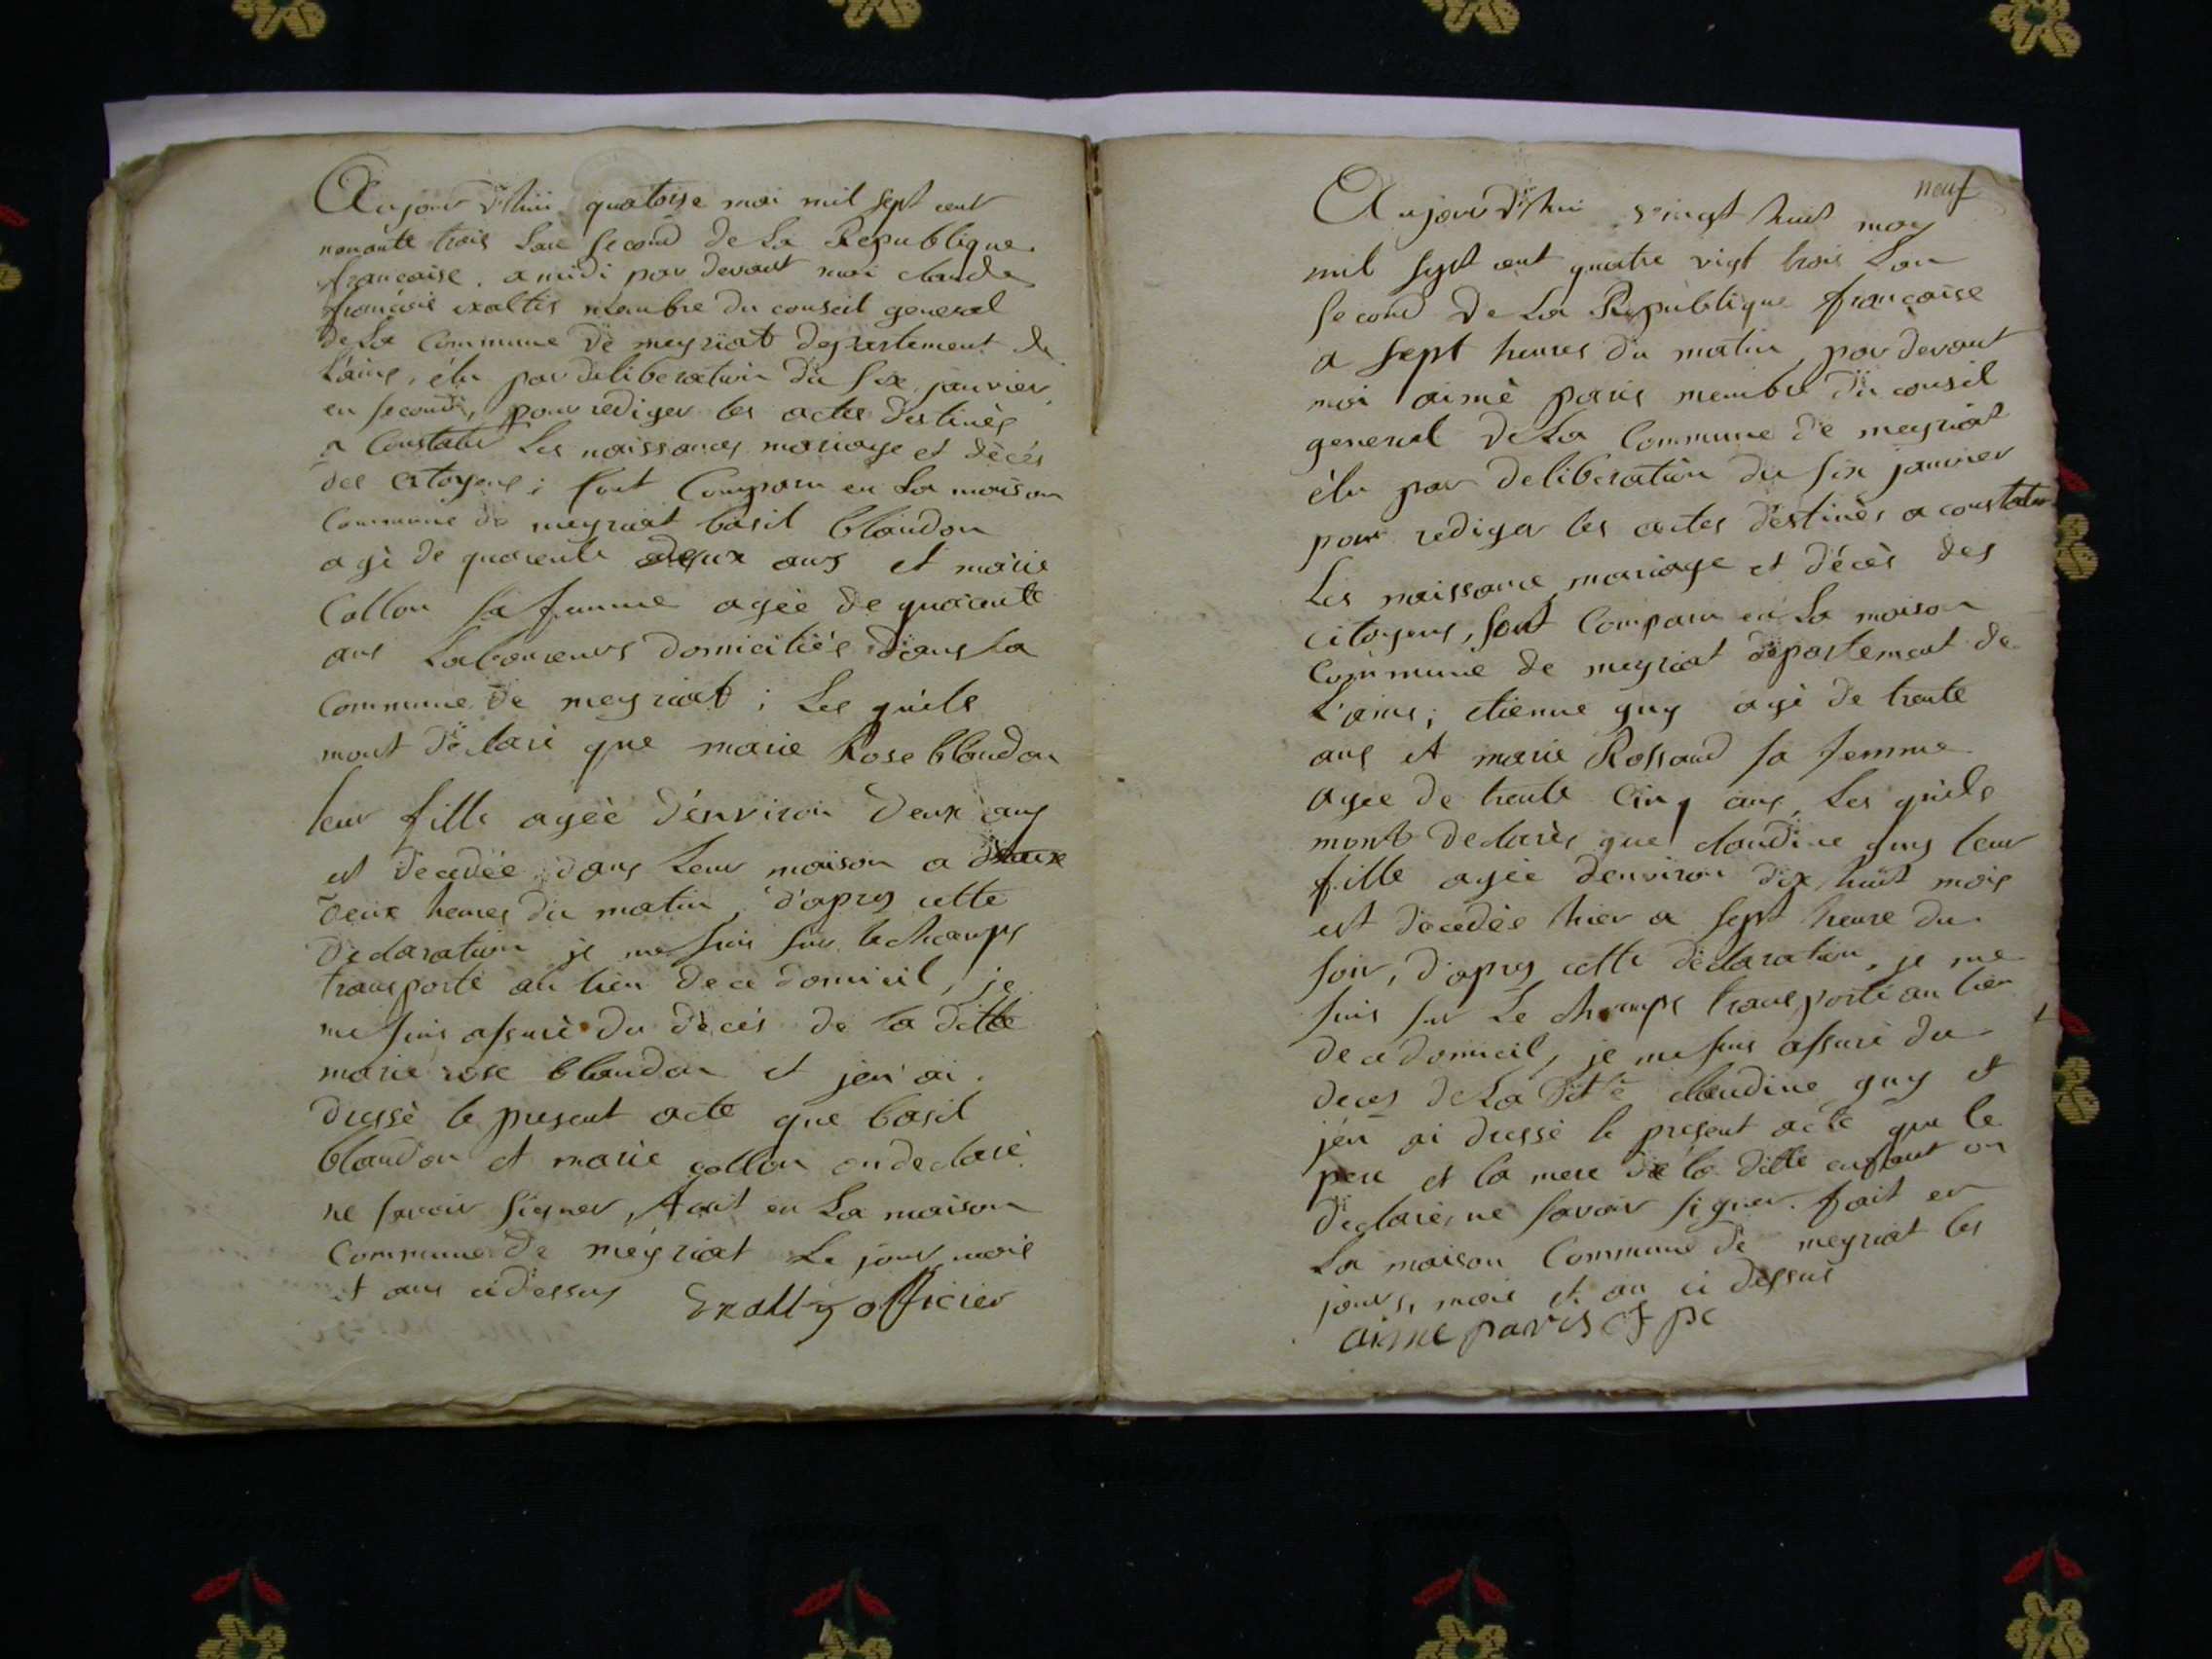 Aujour d'hui quatorse mai mil sept cent
nonante trois Lan second de La Republique
francaise. a midi par devant moi claude
françois exaltis membre du conseil general
de La Commune de meyriat departement de
L'ains, élu par deliberation du six janvier
en second, pour rediger les actes destinés
a Constater Les naissances mariage et décés
des citoyens; sont Comparu en La maison
Commune de meyriat basil blandon
agé de quarente deux ans et marie
Collon sa femme ageé de quarente
ans Laboureurs domiciliés dans La
Commune de meyriat; Les quels
mont déclaré que marie Rose blandon
leur fille ageé d'environ deux ans
est decedée dans Leur maison a
deux heures du matin, d'aprés cette
declaration je me suis sur le champs
transporté au lieu de ce domicil, je
me suis assuré du décés de la ditte
marie rose blandon et j'en ai
dressé le present acte que basil
blandon et marie collon on declaré
ne savoir signer, fait en La maison
Commune de meyriat Le jour mois
et ans ci dessus officier
neuf
Aujour d'hui vingt huit may
mil sept cent quatre vigt trois Lan
second de La Republique françoise
a sept heures du matin, par devant
moi aimé paris membre du consil
general de La Commune de meyriat
élu par deliberation du six janvier
pour rediger les actes destinés a constater
Les naissance mariage et décès des
citoyens, sont Comparu en La maison
Commune de meyriat département de
L'ains; etienne guy agé de trente
ans et marie Rossand sa femme
agee de trente Cinq ans, Les quels
mont declarés que claudine guy leur
fille agée d'environ dix huit mois
est decedée hier a sept heure du
soir, d'aprés cette déclaration, je me
suis sur Le champs transporté au lieu
de ce domicil, je me suis assuré du
deces de La dite claudine guy et
j'en ai dressé le present acte que le
pere et la mere de la ditte enfant on
declaré, ne savoir signer. fait en
La maison Commune de meyriat les
jours, mois et an ci dessus
aime paris